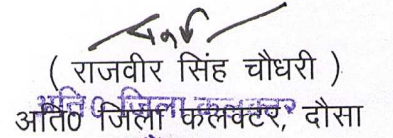 ( राजवीर सिंह चौधरी )
अति0 जिला कलक्टर, दौसा
अति0 जिला कलक्टर